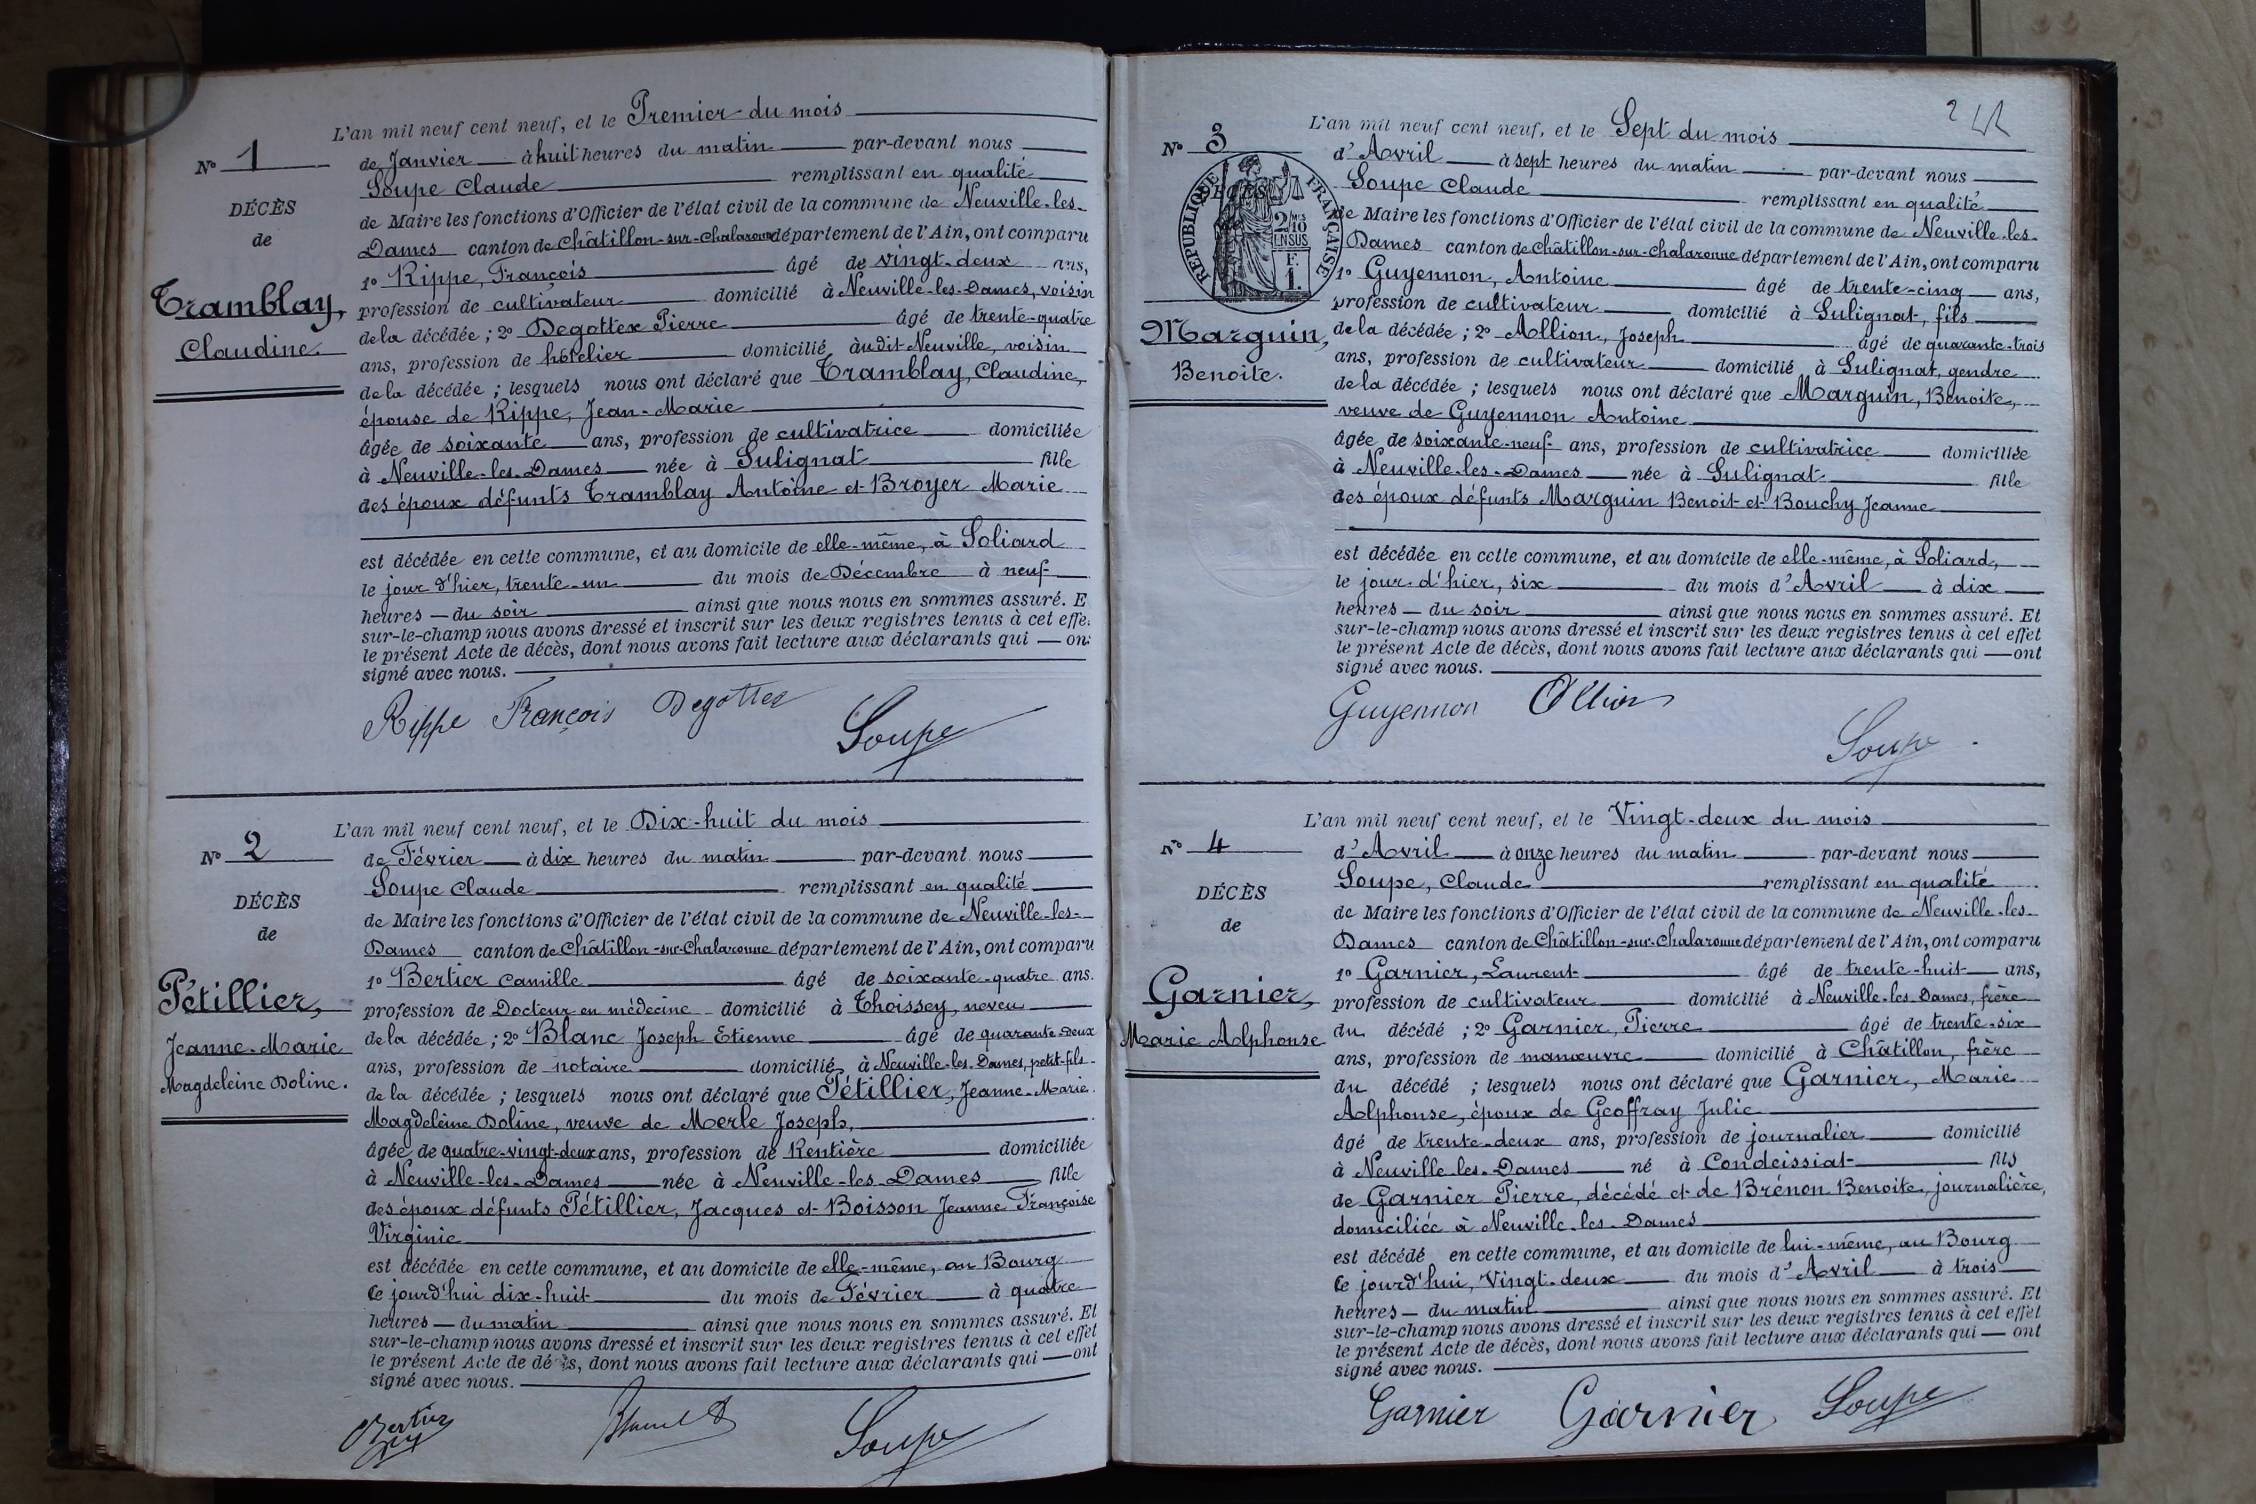 L'an mil neuf cent neuf, et le Premier du mois
N° 1
de Janvier à huit heures du matin par-devant nous
Soupe Claude remplissant en qualité
DÉCÈS
de Maire les fonctions d'Officier de l'état civil de la commune de Neuville-les-
de
Dames canton de Châtillon-sur-Chalaronne département de l'Ain, ont comparu
1° Rippe, François âgé de vingt-deux ans,
Tramblay,
profession de cultivateur domicilié à Neuville-les-Dames, voisin
Claudine.
de la décédée ; 2° Degottex Pierre âgé de trente-quatre
ans, profession de hôtelier domicilié audit Neuville, voisin
de la décédée ; lesquels nous ont déclaré que Tramblay, Claudine,
épouse de Rippe, Jean-Marie
âgée de soixante ans, profession de cultivatrice domiciliée
à Neuville-les-Dames née à Sulignat fille
des époux défunts Tramblay Antoine et Broyer Marie
est décédée en cette commune, et au domicile de elle-même, à Soliard
le jour d'hier, trente-un du mois de Décembre à neuf
heures du soir ainsi que nous nous en sommes assuré. E
sur-le-champ nous avons dressé et inscrit sur les deux registres tenus à cet effe
le présent Acte de décès, dont nous avons fait lecture aux déclarants qui on
signé avec nous.
Rippe François Degottex
Soupe
L'an mil neuf cent neuf, et le Dix-huit du mois
N° 2
de Février à dix heures du matin par-devant nous
Soupe Claude remplissant en qualité
DÉCÈS
de Maire les fonctions d'Officier de l'état civil de la commune de Neuville-les-
de
Dames canton de Châtillon-sur-Chalaronne département de l'Ain, ont comparu
1° Bertier Camille âgé de soixante-quatre ans.
Pétillier,
profession de Docteur en médecine domicilié à Thoissey, neveu
de la décédée ; 2° Blanc Joseph Etienne âgé de quarante-deux
Jeanne-Marie
ans, profession de notaire domicilié à Neuville-les-Dames, petit-fils
Magdeleine Doline.
de la décédée ; lesquels nous ont déclaré que Pétillier, Jeanne-Marie
Magdeleine Doline, veuve de Merle Joseph,
âgée de quatre-vingt-deux ans, profession de Rentière domiciliée
à Neuville-les-Dames née à Neuville-les-Dames fille
des époux défunts Pétillier, Jacques et Boisson Jeanne Françoise
Virginie
est décédée en cette commune, et au domicile de elle-même, au Bourg
ce jourd'hui dix-huit du mois de Février à quatre
heures du matin ainsi que nous nous en sommes assuré. Et
sur-le-champ nous avons dressé et inscrit sur les deux registres tenus à cet effet
le présent Acte de décès, dont nous avons fait lecture aux déclarants qui ont
signé avec nous.
Bertier Blanc
Soupe
L'an mil neuf cent neuf, et le Sept du mois
N° 3
d'Avril à sept heures du matin par-devant nous
Soupe Claude remplissant en qualité
RÉPUBLIQUE FRANÇAISE
2/10 EN SUS
F. 1.
de Maire les fonctions d'Officier de l'état civil de la commune de Neuville-les-
Dames canton de Châtillon-sur-Chalaronne département de l'Ain, ont comparu
1° Guyennon, Antoine âgé de trente-cinq ans,
profession de cultivateur domicilié à Sulignat, fils
Marguin,
de la décédée ; 2° Allion, Joseph âgé de quarante-trois
ans, profession de cultivateur domicilié à Sulignat, gendre
Benoite.
de la décédée ; lesquels nous ont déclaré que Marguin, Benoite,
veuve de Guyennon Antoine
âgée de soixante-neuf ans, profession de cultivatrice domiciliée
à Neuville-les-Dames née à Sulignat fille
des époux défunts Marguin Benoit et Bouchy Jeanne
est décédée en cette commune, et au domicile de elle-même, à Soliard,
le jour d'hier, six du mois d'Avril à dix
heures du soir ainsi que nous nous en sommes assuré. Et
sur-le-champ nous avons dressé et inscrit sur les deux registres tenus à cet effet
le présent Acte de décès, dont nous avons fait lecture aux déclarants qui ont
signé avec nous.
Guyennon Allion
Soupe
L'an mil neuf cent neuf, et le Vingt-deux du mois
N° 4
d'Avril à onze heures du matin par-devant nous
Soupe, Claude remplissant en qualité
DÉCÈS
de Maire les fonctions d'Officier de l'état civil de la commune de Neuville-les-
de
Dames canton de Châtillon-sur-Chalaronne département de l'Ain, ont comparu
1° Garnier, Laurent âgé de trente-huit ans,
Garnier,
profession de cultivateur domicilié à Neuville-les-Dames, frère
du décédé ; 2° Garnier, Pierre âgé de trente-six
Marie Alphonse
ans, profession de manœuvre domicilié à Châtillon, frère
du décédé ; lesquels nous ont déclaré que Garnier, Marie
Alphonse, époux de Geoffray Julie
âgé de trente-deux ans, profession de journalier domicilié
à Neuville-les-Dames né à Condeissiat fils
de Garnier Pierre, décédé et de Brénon Benoite, journalière,
domiciliée à Neuville-les-Dames
est décédé en cette commune, et au domicile de lui-même, au Bourg
ce jourd'hui, Vingt-deux du mois d'Avril à trois
heures du matin ainsi que nous nous en sommes assuré. Et
sur-le-champ nous avons dressé et inscrit sur les deux registres tenus à cet effet
le présent Acte de décès, dont nous avons fait lecture aux déclarants qui ont
signé avec nous.
Garnier Garnier Soupe